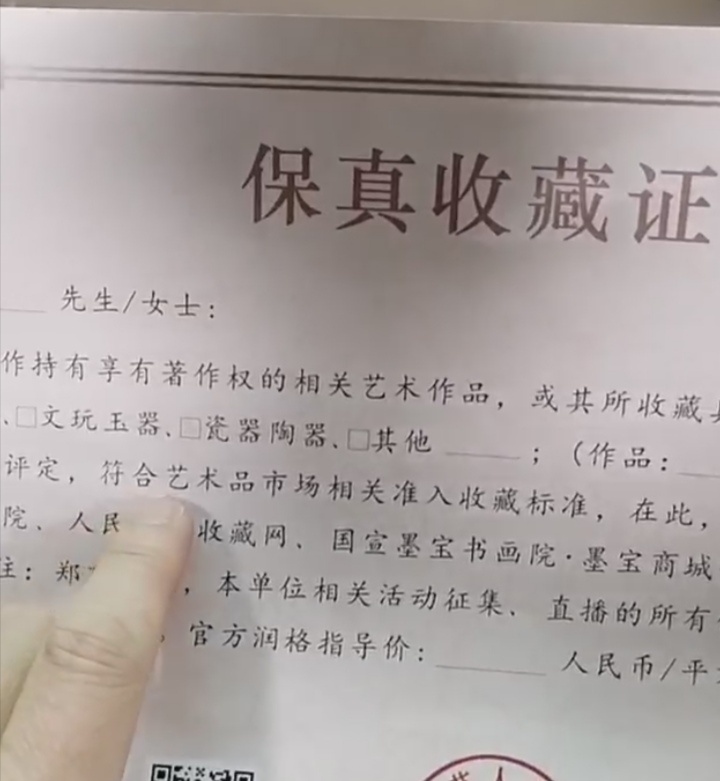 保真收藏证
先生/女士：
作持有享有著作权的相关艺术作品，或其所收藏
、□文玩玉器、□瓷器陶器、□其他 ______ ；（作品：
评定，符合艺术品市场相关准入收藏标准，在此，
院、人民 收藏网、国宣墨宝书画院·墨宝商城
注：郑 ，本单位相关活动征集、直播的所有
。官方润格指导价：______ 人民币/平
人